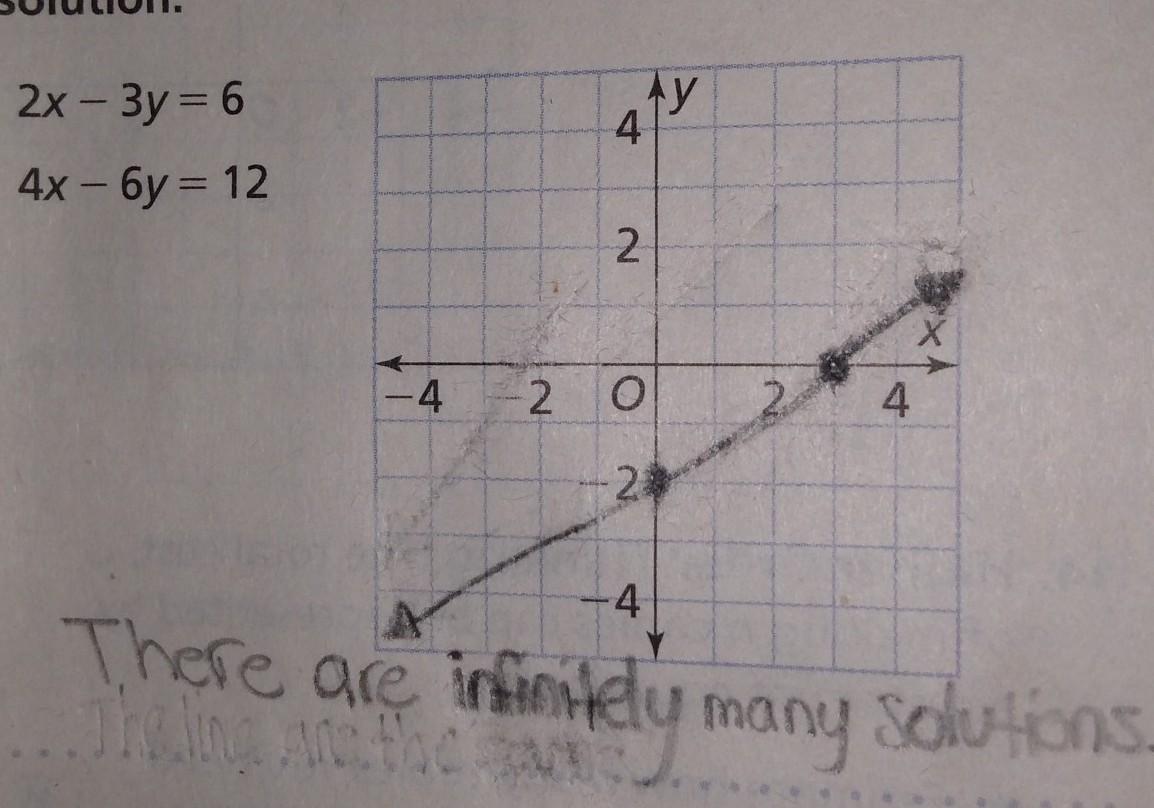 solution.
2x − 3y = 6
4x − 6y = 12
y
4
2
x
−4 −2 O 2 4
−2
−4
There are infinitely many solutions.
The line are the same